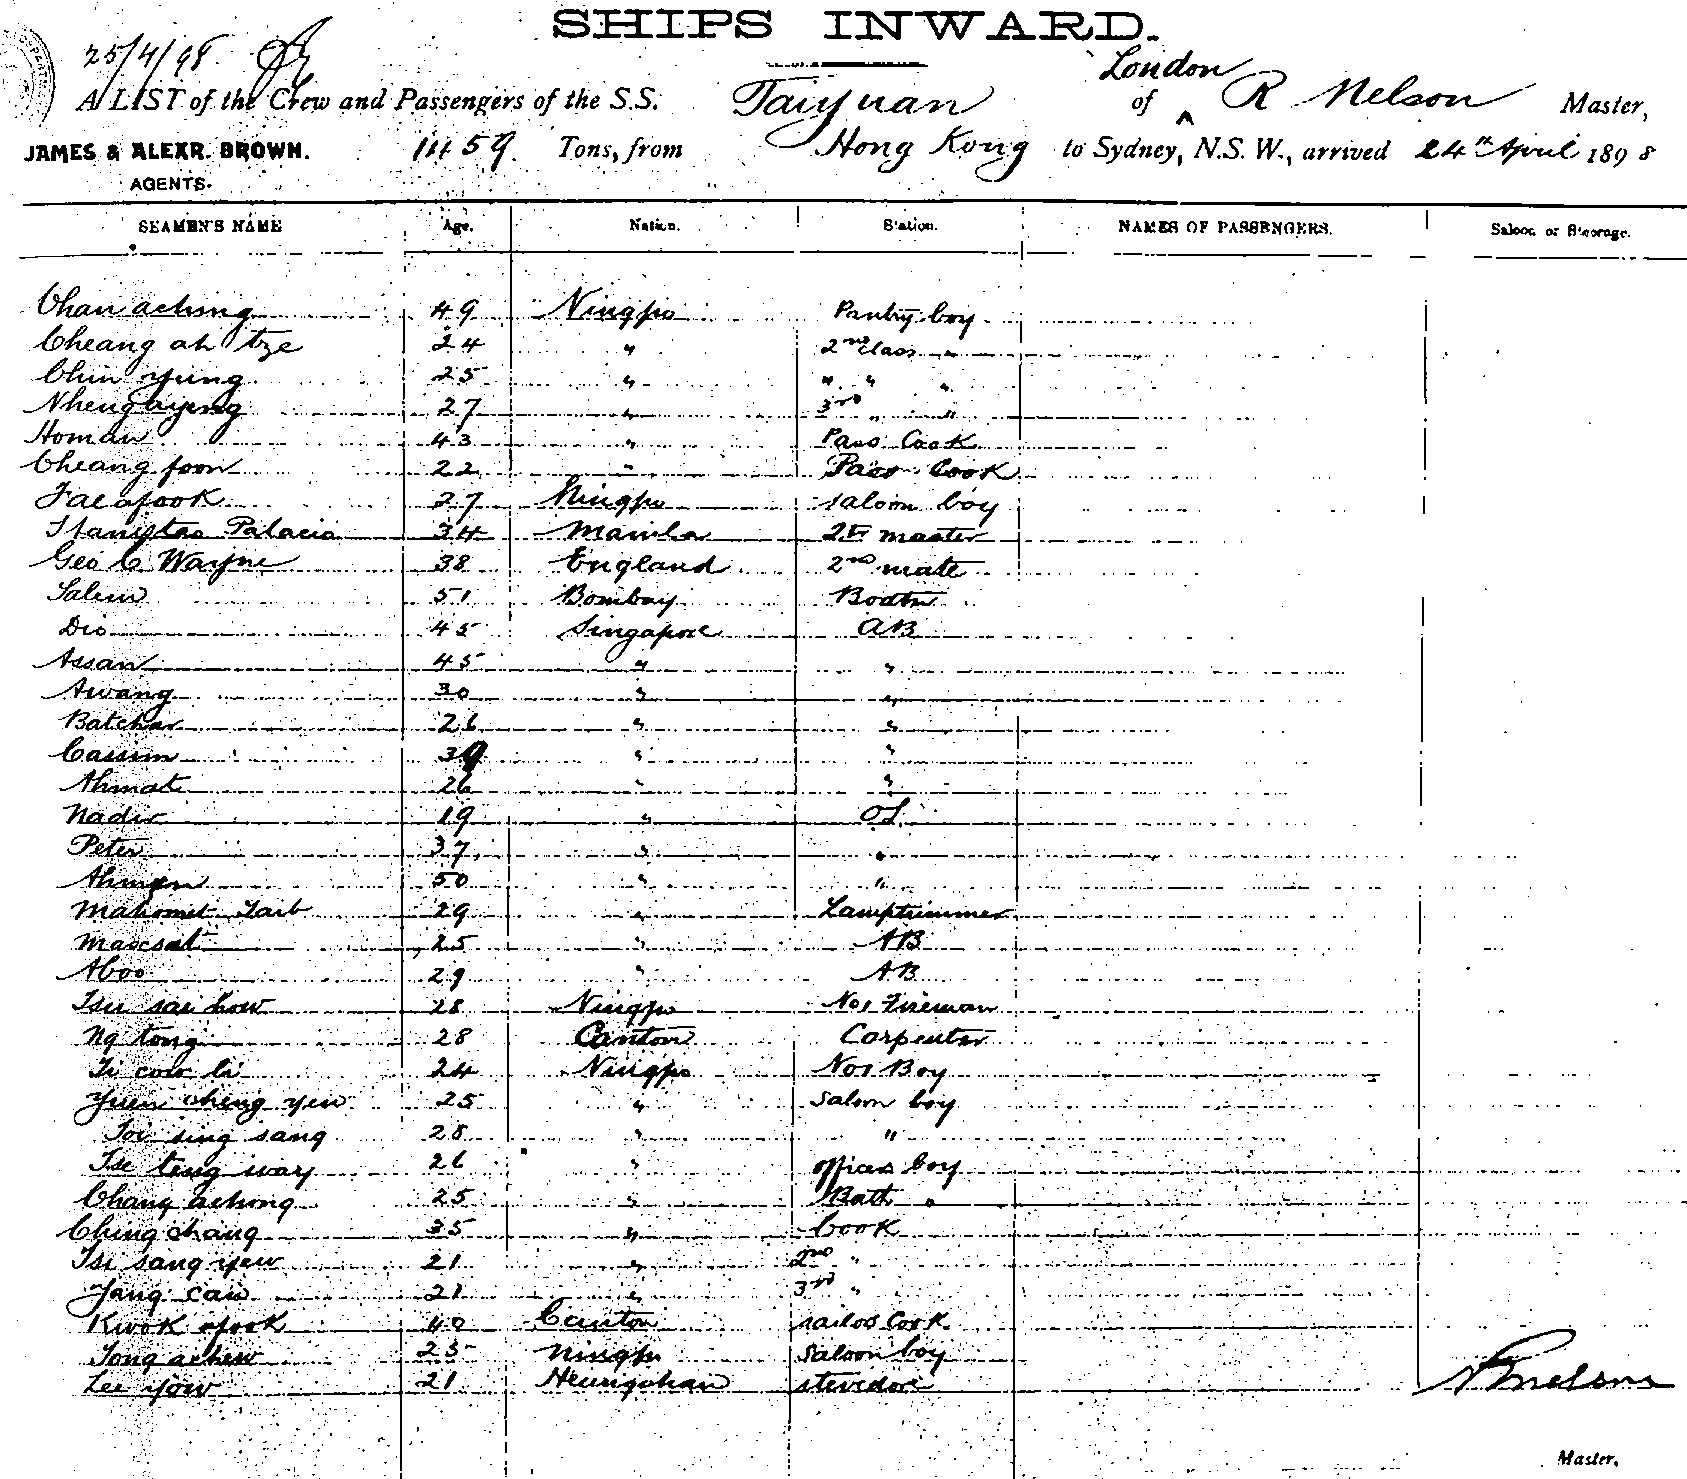 SHIPS INWARD.
25/4/98
London
A LIST of the Crew and Passengers of the S.S. Taiyuan of ^ R Nelson Master,
JAMES & ALEXR. BROWN. 1459 Tons, from Hong Kong to Sydney, N.S.W., arrived 24th April 1898
AGENTS.
SEAMEN'S NAME Age. Nation. Station. NAMES OF PASSENGERS. Saloon or Steerage.
Chan aching 49 Ningpo Pantry boy
Cheang ah tze 24 " 2nd class "
Chin yung 25 " " " "
Nheng ayeng 27 " 3rd " "
Homan 43 " Pass Cook
Cheang foon 22 " Pass Cook
Fae afook 27 Ningpo saloon boy
Palacio 34 Manila 2r master
Geo C Wayne 38 England 2nd mate
Salem 51 Bombay Boatn
Dio 45 Singapore AB
Assan 45 " "
Awang 30 " "
Batchar 26 " "
Cassim 39 " "
Ahmat 26 " "
Nadir 19 " OS
Peter 37 " "
Ahmen 50 " "
Mahomet Taib 29 " Lamptrimmer
Macsat 25 " AB
Aboo 29 " AB
Tsu sai how 28 Ningpo No1 Fireman
Ng tong 28 Canton Carpenter
Li cow li 24 Ningpo No1 Boy
Yuen ching yew 25 " Saloon boy
Tov sing sang 28 " "
Tse teng way 26 " officers boy
Chang achong 25 " Bath "
Ching chang 35 " Cook
Tse sang yew 21 " 2nd "
Yang caw 21 " 3rd "
Kwok afook 40 Canton sailos Cook
Tong achew 25 Ningpo Saloon boy
Lee yow 21 Heungshan stevedore
R Nelson
Master.